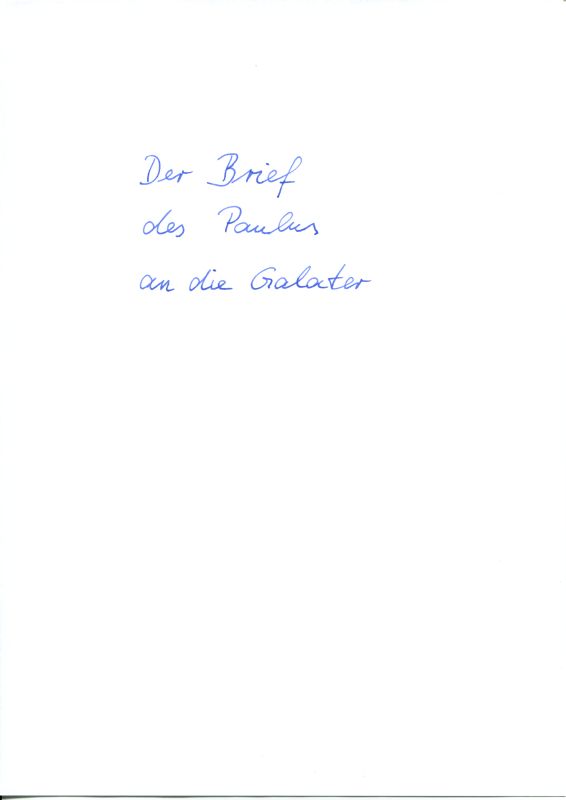 Der Brief
des Paulus
an die Galater